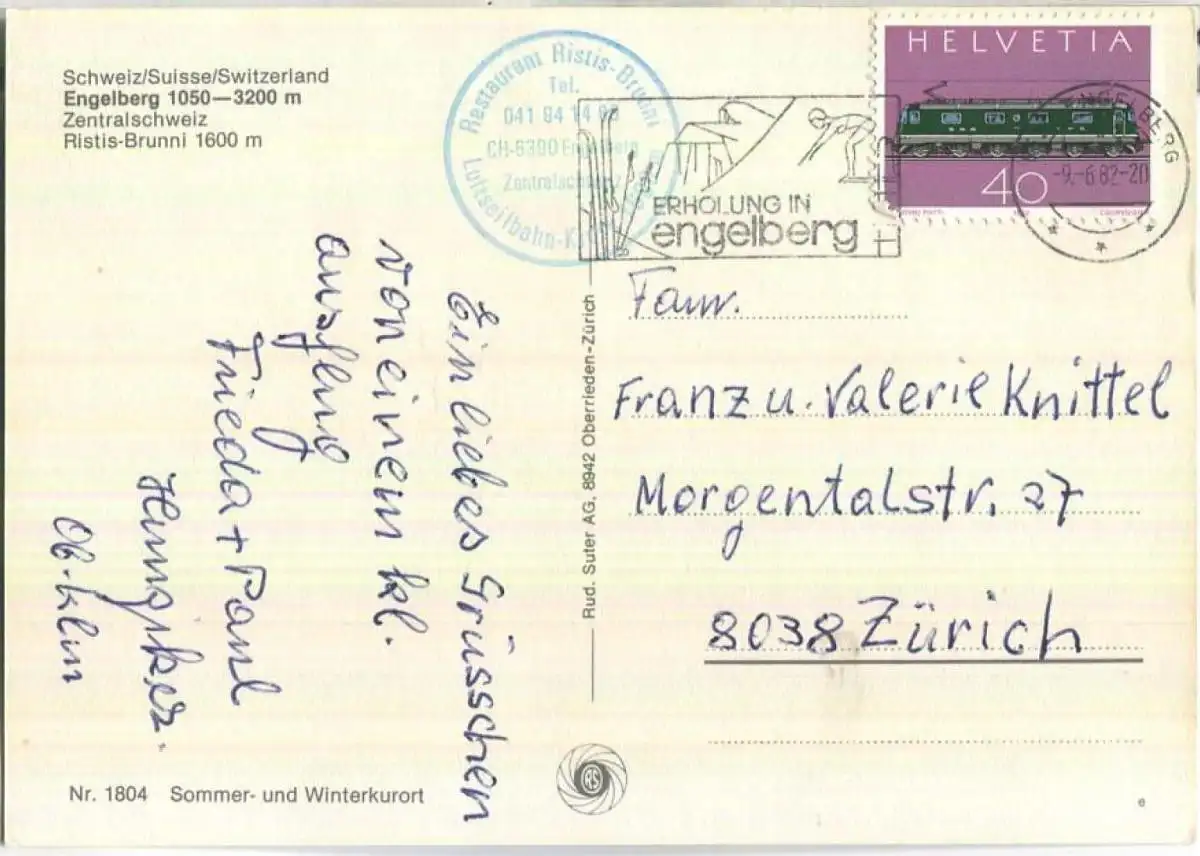 Schweiz/Suisse/Switzerland
Engelberg 1050—3200 m
Zentralschweiz
Ristis-Brunni 1600 m
Restaurant Ristis-Brunni
Tel.
041 94 14
CH-6390 Engelberg
Luftseilbahn-
ERHOLUNG IN
engelberg
HELVETIA
40
ENGELBERG
-9.-6.82-20
Ein liebes Grüsschen
von einem kl.
Ausflug
Frieda + Paul
Fam.
Franz u. Valerie Knittel
Morgentalstr. 27
8038 Zürich
Rud. Suter AG, 8942 Oberrieden-Zürich
RS
Nr. 1804 Sommer- und Winterkurort
e